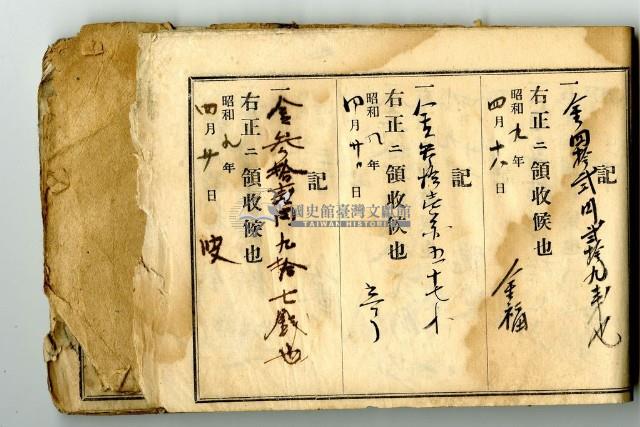 記
一金四拾弐円弐拾九銭也
右正ニ領收候也
昭和九年
四月十六日
金福
記
一金参拾
右正ニ領收候也
昭和九年
四月廿日
記
一金参拾壹円九拾七戲也
右正ニ領收候也
昭和九年
四月廿日
國史館臺灣文獻館
TAIWAN HISTORICA